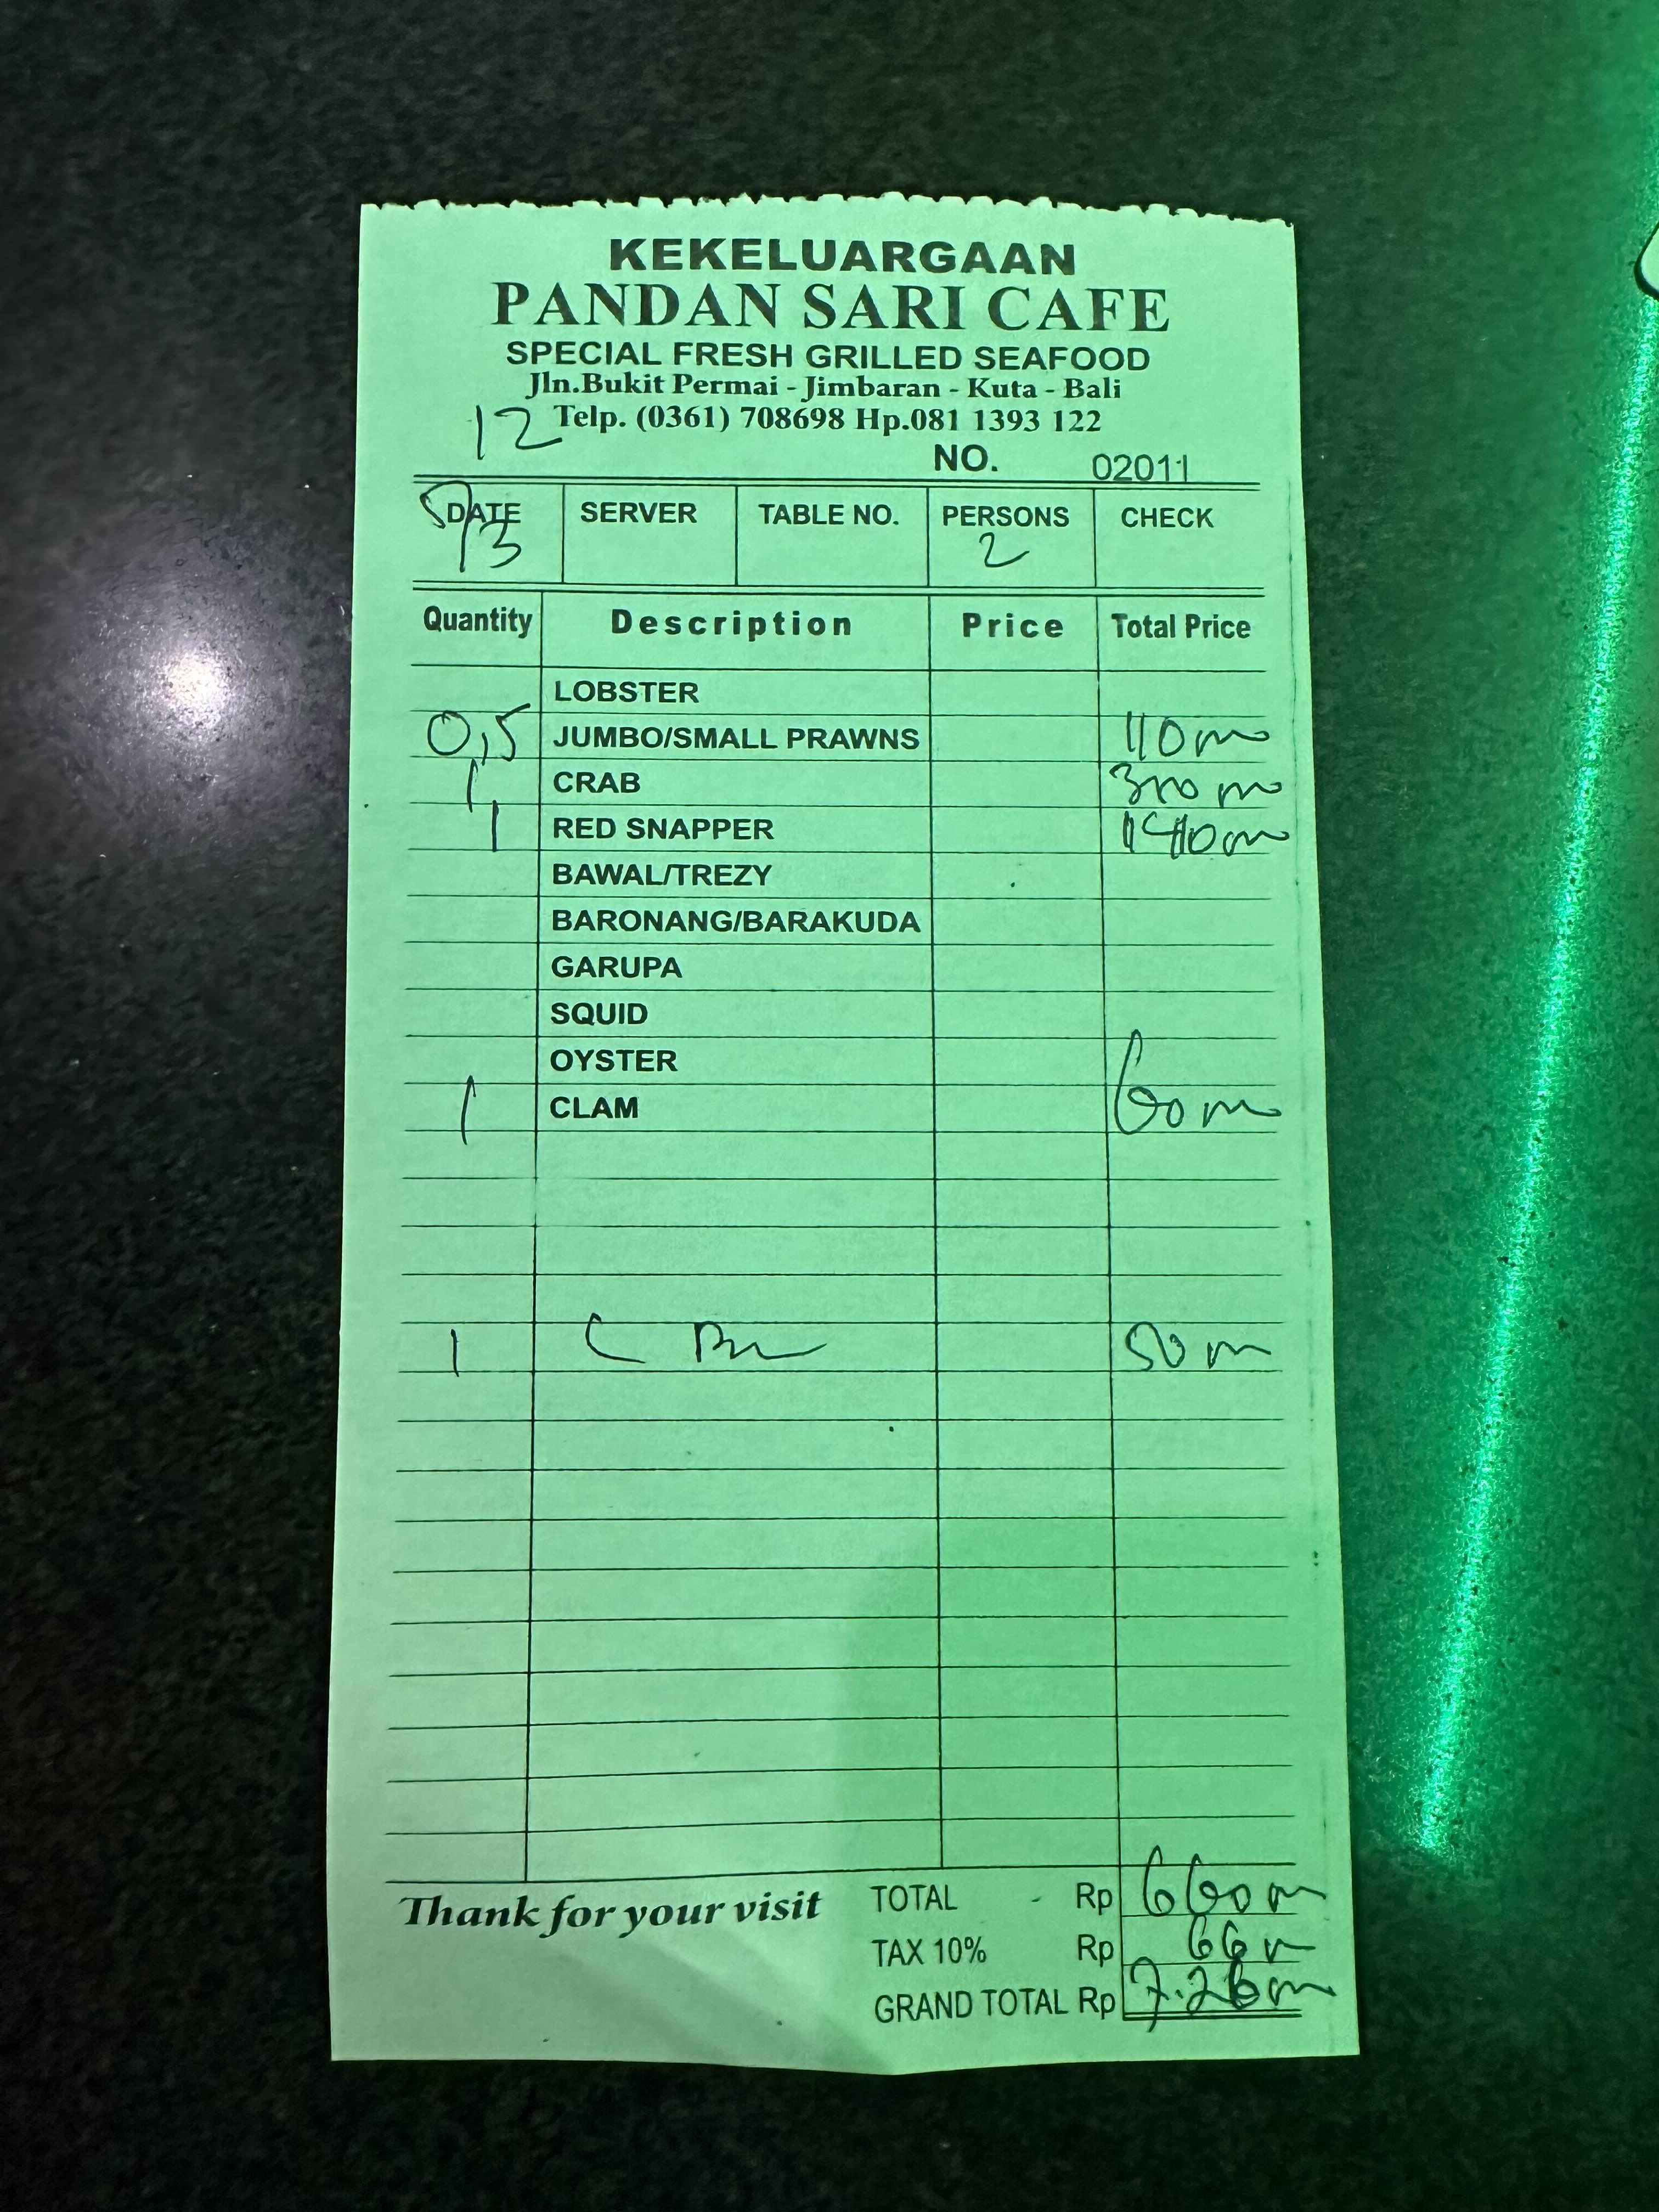 KEKELUARGAAN
PANDAN SARI CAFE
SPECIAL FRESH GRILLED SEAFOOD
Jln.Bukit Permai - Jimbaran - Kuta - Bali
12 Telp. (0361) 708698 Hp.081 1393 122
NO. 02011
DATE SERVER TABLE NO. PERSONS CHECK
9/3 2
Quantity Description Price Total Price
LOBSTER
0,5 JUMBO/SMALL PRAWNS 110m
1 CRAB 300m
1 RED SNAPPER 140m
BAWAL/TREZY
BARONANG/BARAKUDA
GARUPA
SQUID
OYSTER
1 CLAM 60m
1 C 50m
Thank for your visit
TOTAL - Rp 660m
TAX 10% Rp 66m
GRAND TOTAL Rp 7.26m